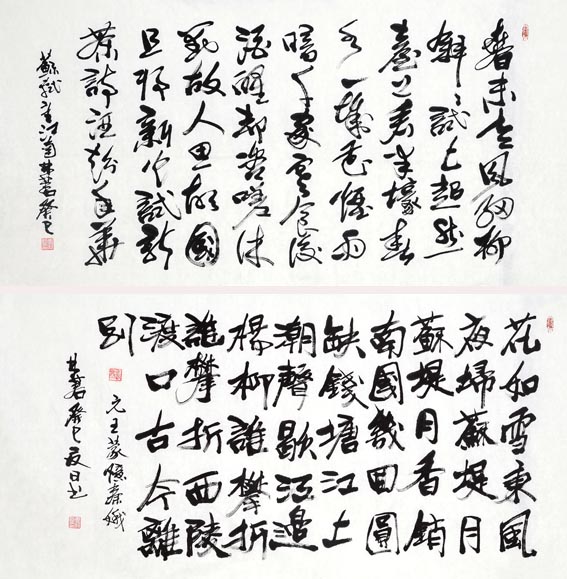 春未老風細柳
斜々試上超然
臺上看半壕春
水一城花煙雨
暗千家寒食後
酒醒却咨嗟休
對故人思故國
且將新火試新
茶詩酒趁年華
蘇軾望江南 癸巳
花如雪東風
夜掃蘇堤月
蘇堤月香銷
南國幾回圓
缺錢塘江上
潮聲歇江邊
楊柳誰攀折
誰攀折西陵
渡口古今離
別
元王蒙憶秦娥
癸巳夏日書